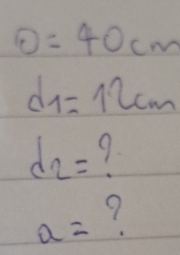 O = 40 cm
d1 = 12 cm
d2 = ?
a = ?